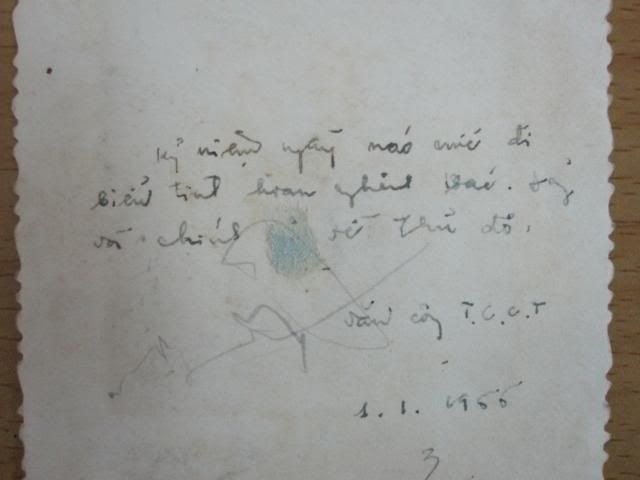 Kỷ niệm ngày nào
biểu tình hoan nghênh Bác. Đảng
và chính về Thủ đô.
văn công T.C.C.T
1.1.1955
3